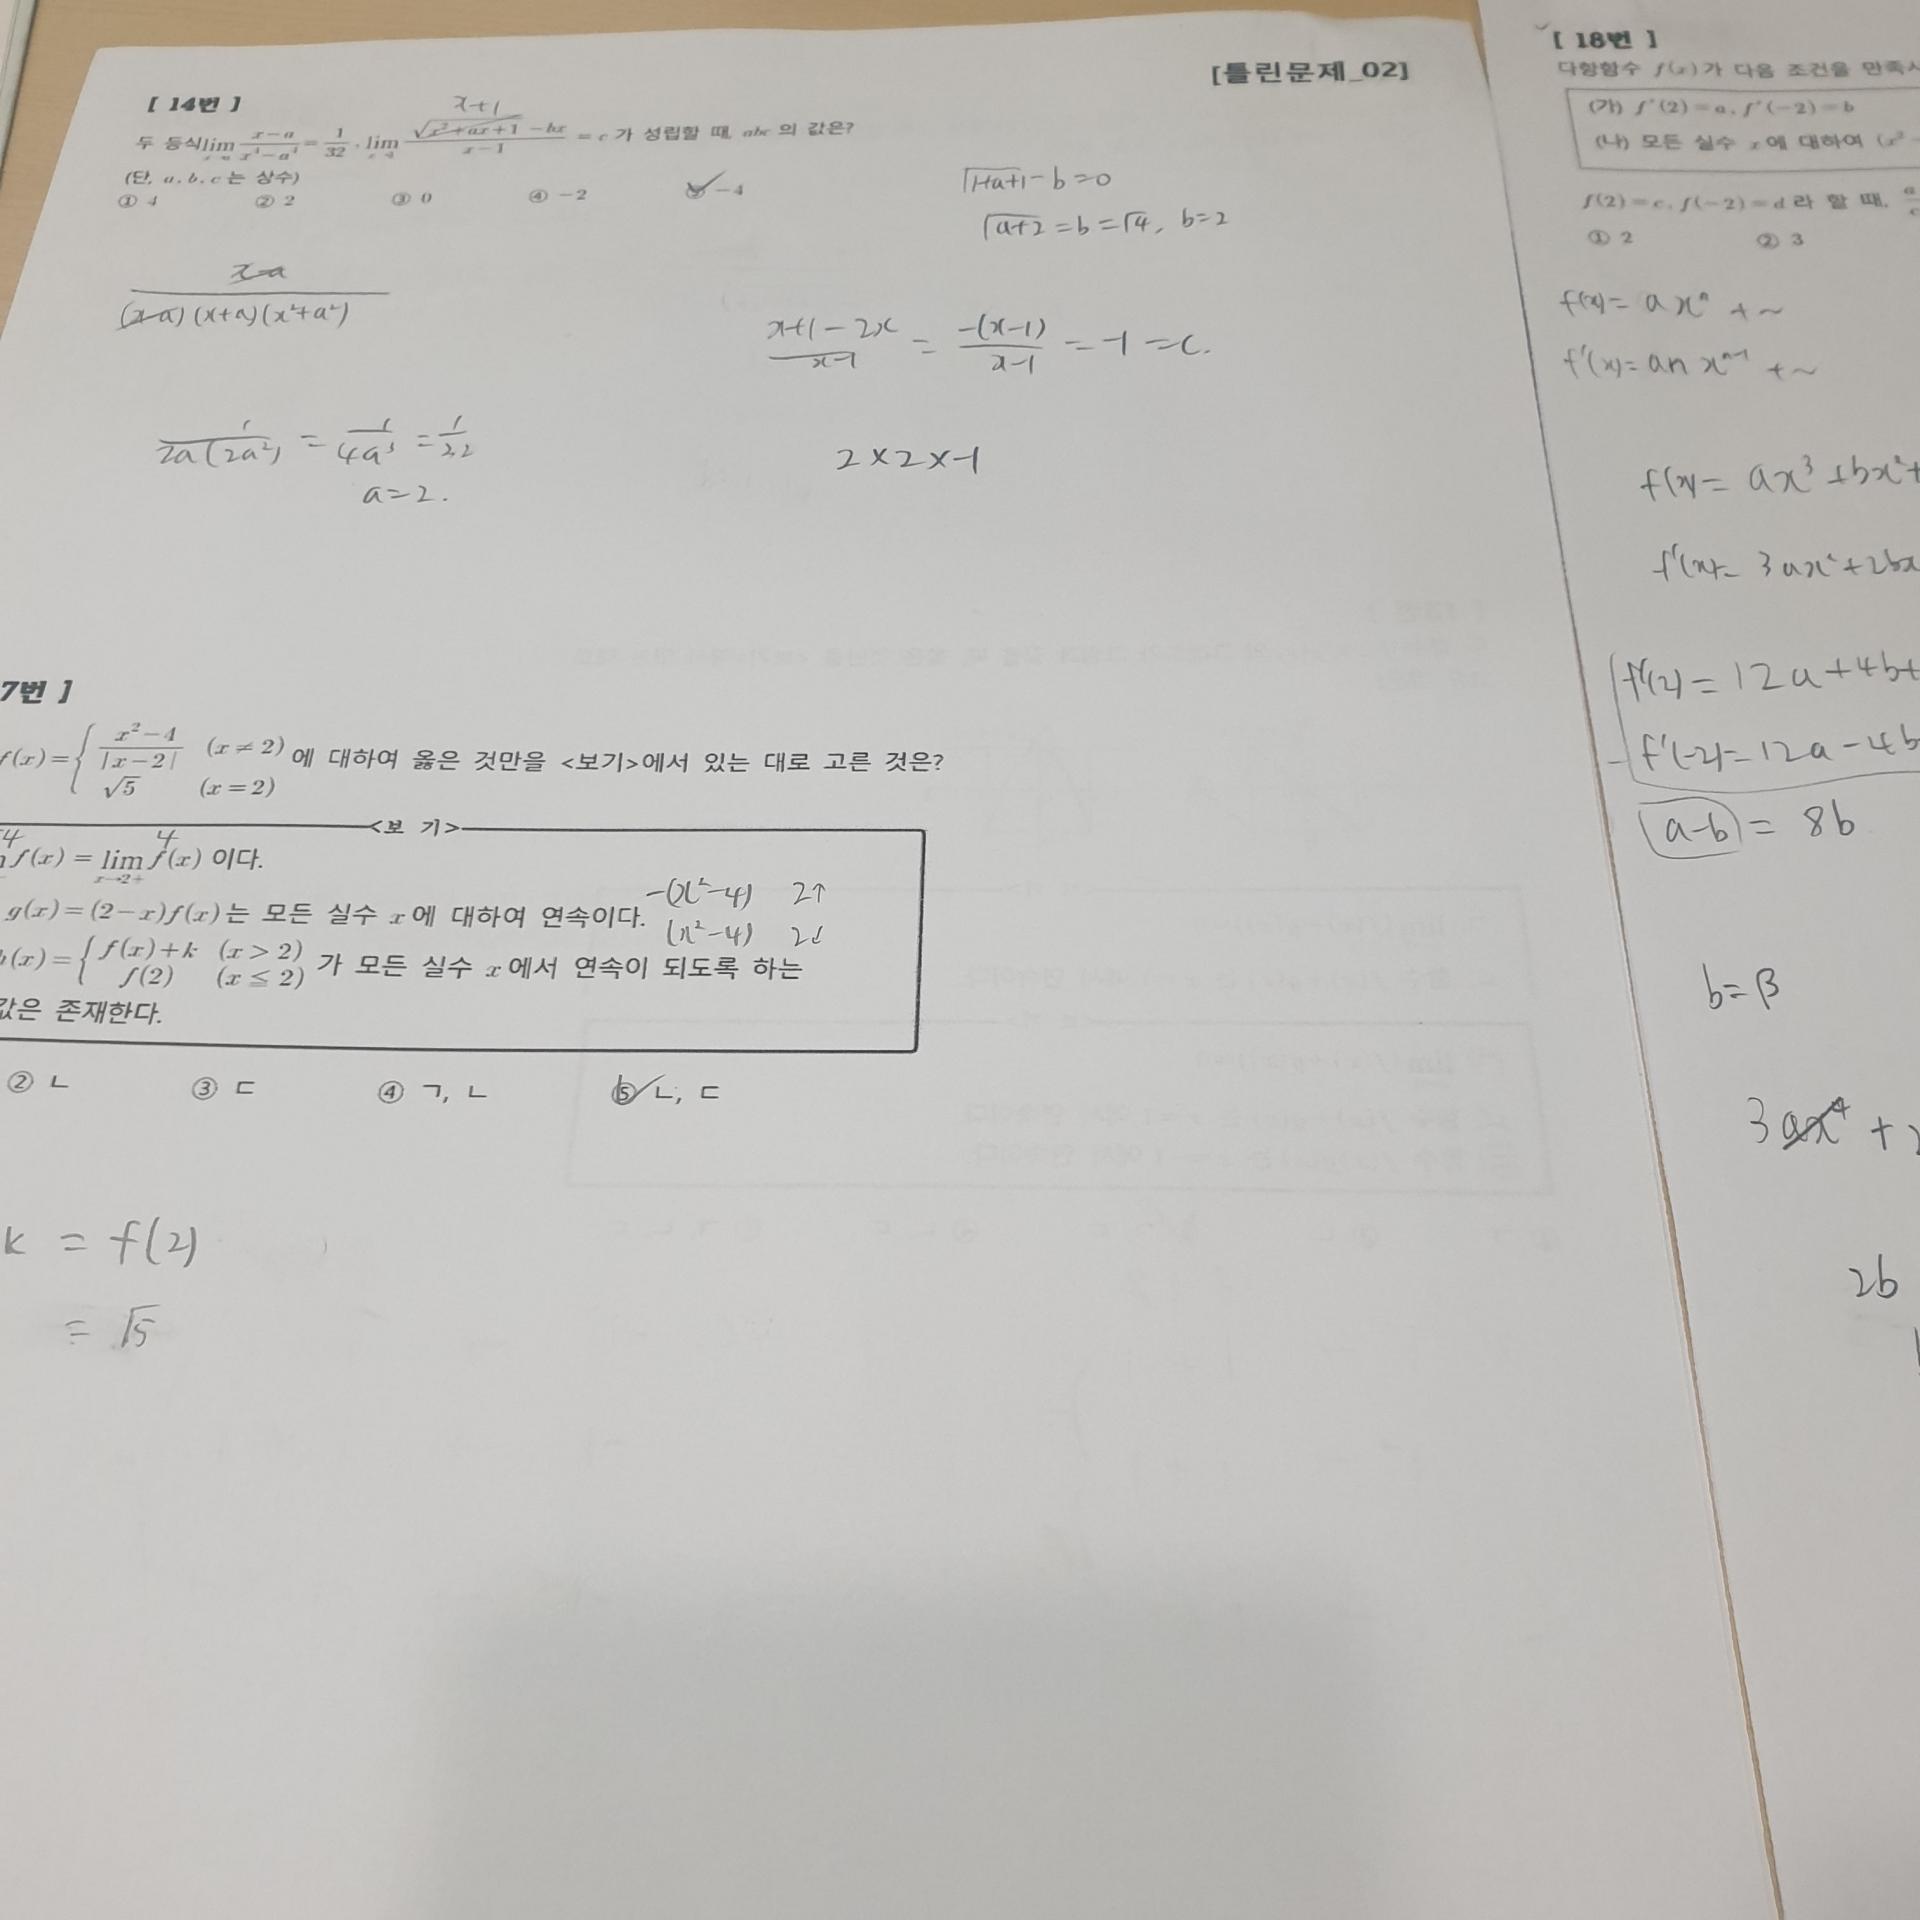 [틀린문제_02]
[ 14번 ]
x+1
두 등식 lim x-a / x⁴-a⁴ = 1/32, lim √x²+ax+1 -bx / x-1 = c 가 성립할 때, abc 의 값은?
(단, a, b, c 는 상수)
① 4 ② 2 ③ 0 ④ -2 ⑤ -4
√1+a+1 - b = 0
√a+2 = b = √4, b=2
x-a / (x-a)(x+a)(x²+a²)
x+1-2x / x-1 = -(x-1) / x-1 = -1 = c.
1 / 2a(2a²) = 1 / 4a³ = 1/32
a=2.
2×2×-1
7번 ]
f(x) = { x²-4 / |x-2| (x≠2)
√5 (x=2) 에 대하여 옳은 것만을 <보기>에서 있는 대로 고른 것은?
<보 기>
4 4
f(x) = lim x→2+ f(x) 이다.
g(x)=(2-x)f(x)는 모든 실수 x에 대하여 연속이다.
-(x²-4) 2↑
(x²-4) 2↓
(x) = { f(x)+k (x>2)
f(2) (x≦2) 가 모든 실수 x에서 연속이 되도록 하는
값은 존재한다.
② ㄴ ③ ㄷ ④ ㄱ, ㄴ ⑤ ㄴ, ㄷ
k = f(2)
= √5
[ 18번 ]
다항함수 f(x)가 다음 조건을
(가) f'(2)=a, f'(-2)=b
(나) 모든 실수 x에 대하여 (x²
f(2)=c, f(-2)=d 라 할 때,
① 2 ② 3
f(x)= axⁿ + ~
f'(x)= an xⁿ⁻¹ + ~
f(x)= ax³+bx²+
f'(x)= 3ax²+2bx
f'(2)= 12a+4b+
- f'(-2)=12a-4b
a-b = 8b
b=β
3ax⁴ +
2b